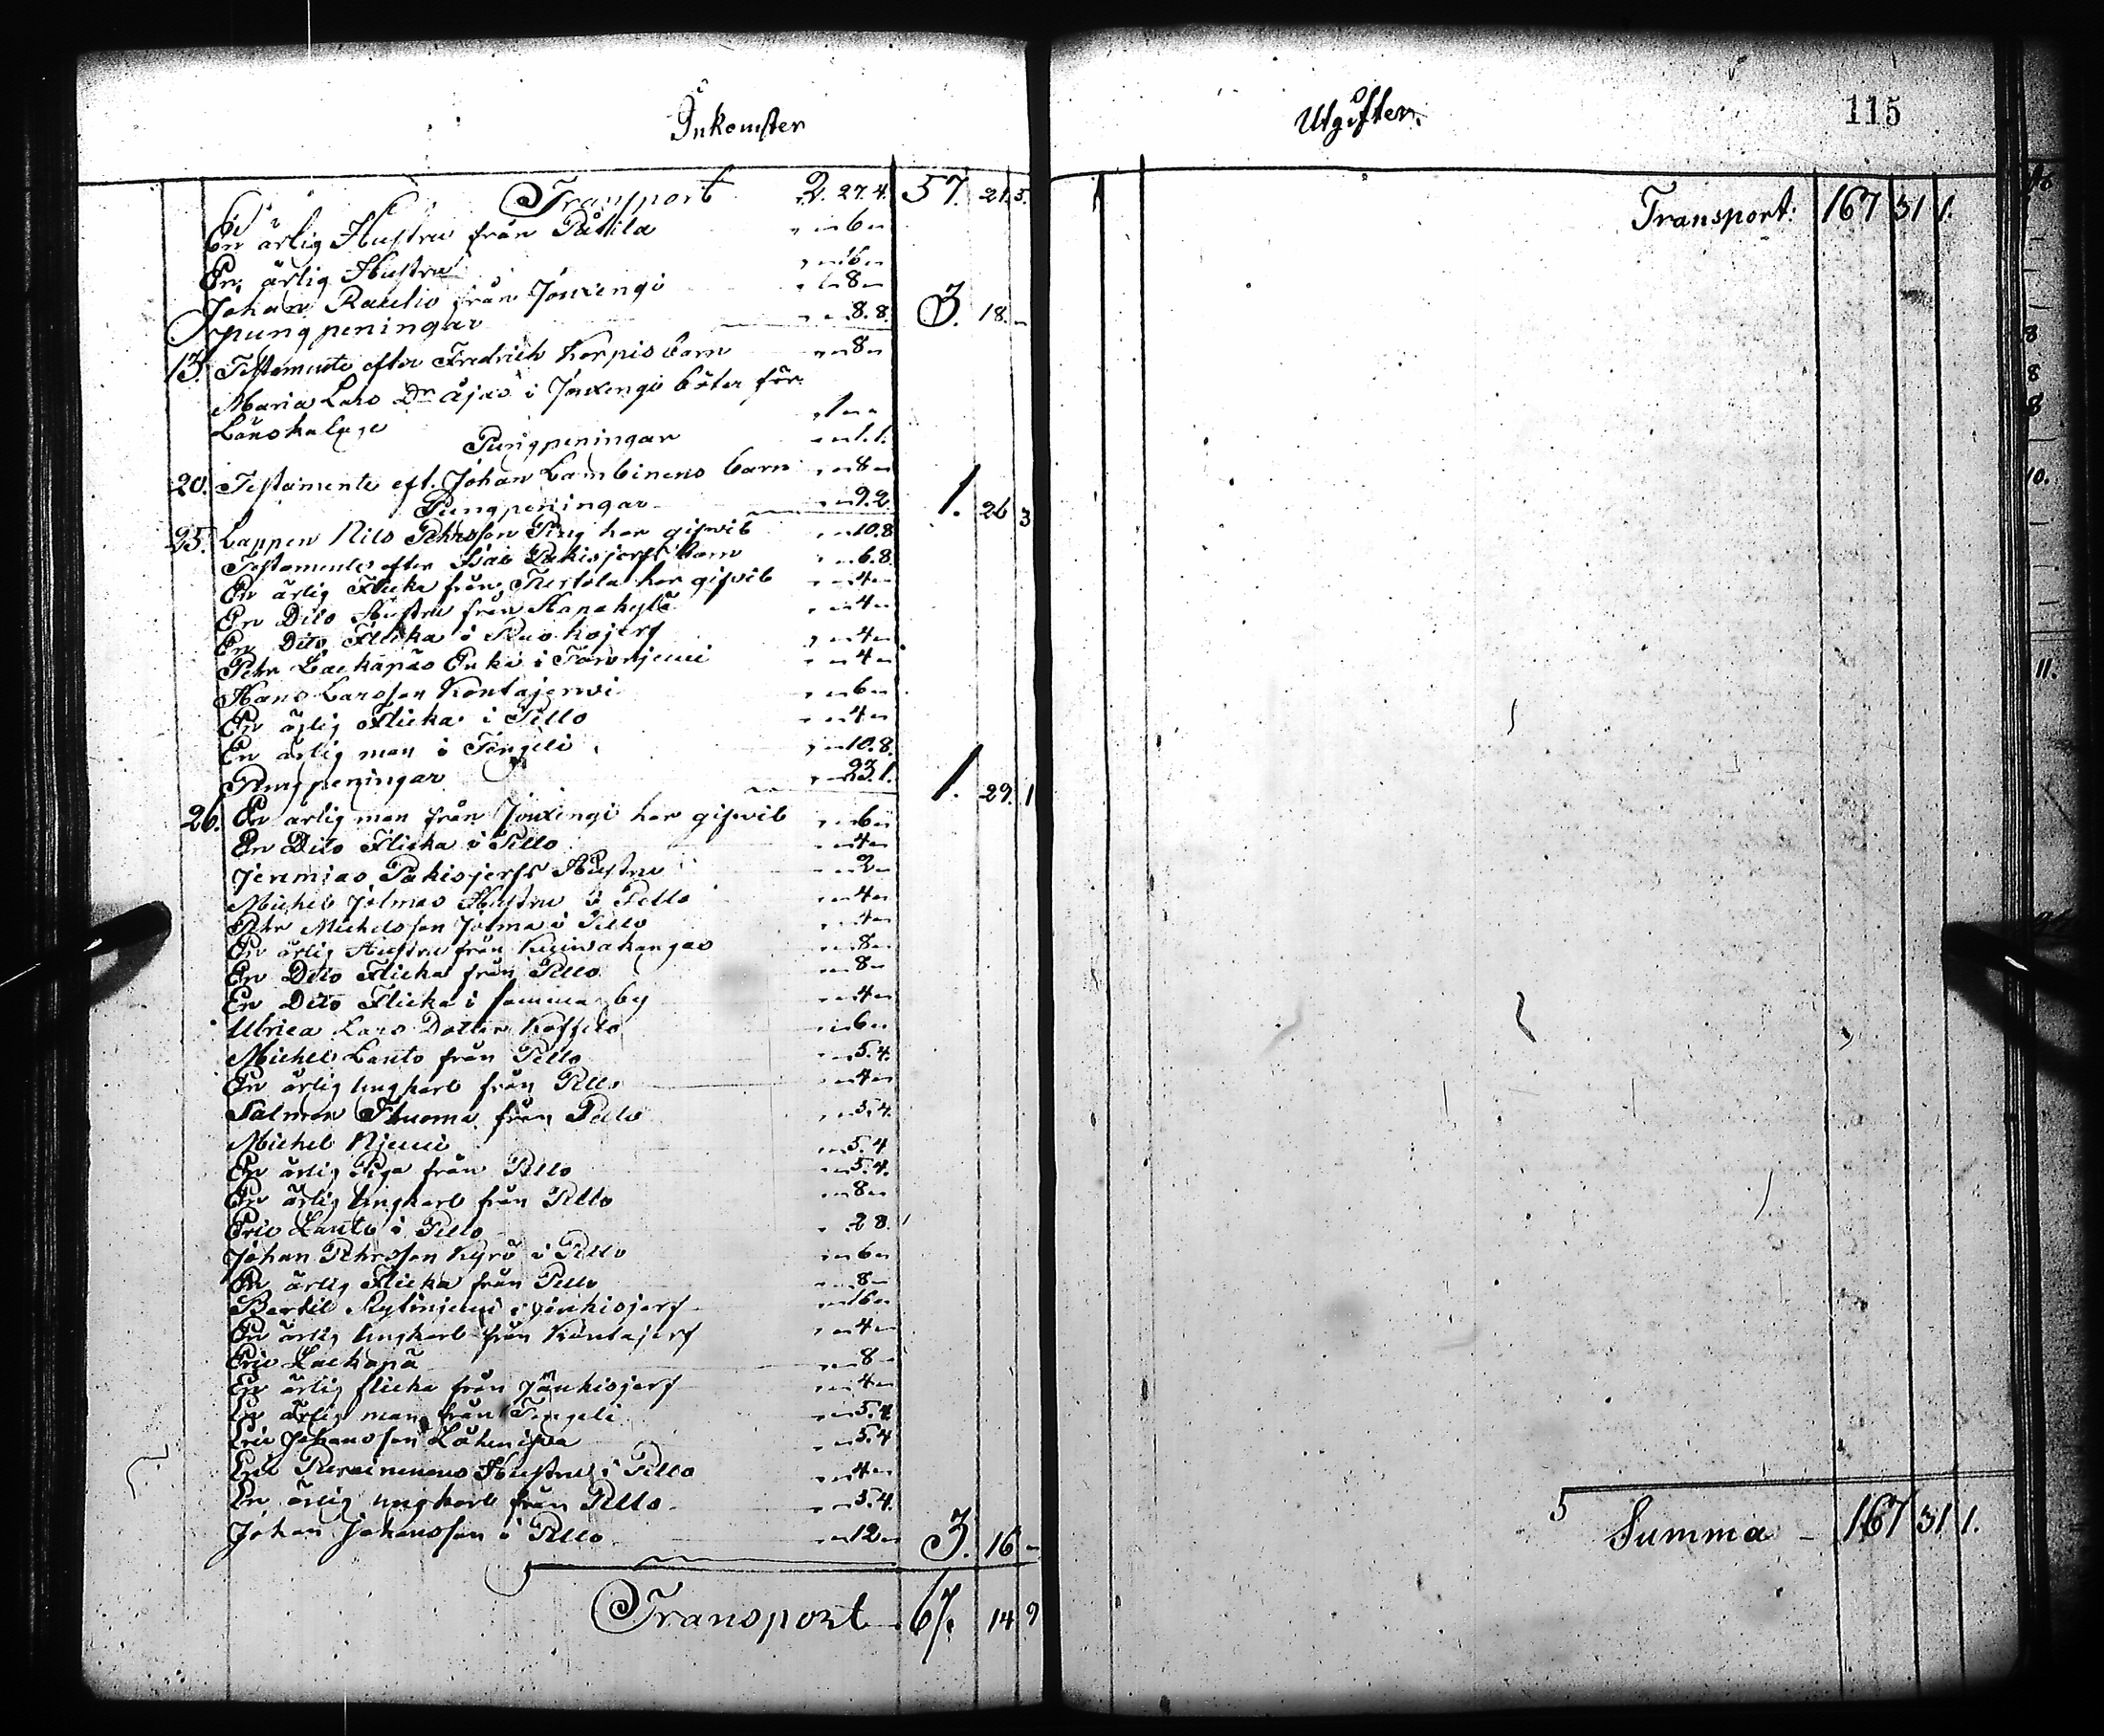 Inkomster
Transport 2. 27. 4. 57. 21. 5.
En ärlig Hustru från Pättilä 6
En ärlig Hustru 16
Johan Raulio från Jouxengi 8
pungpeningar 8. 8. 3. 18.
13. Testamente efter Fredrich Korpis barn 8
Maria Lars Dr Äjas i Jouxengi böter för
Lönskaläge 1
Pungpeningar 1. 1.
20. Testamente eft. Johan Lambinens barn 8
Pungpeningar 9. 2. 1. 26 3
25. Lappen Nils Pehrsson Ping har gifwit 10. 8
Testamente efter Isac Pakisjerfs barn 6. 8
En ärlig Flicka från Turtola har gifwit 4
En Dito Hustru från Kapakylä 4
En Dito Flicka i Ruskojerf 4
Pehr Lackapäs Enka i Torvnjemi 4
Hans Larsson Kontajerwi 6
En ärlig Flicka i Pello 4
En ärlig man i Tengeli 10. 8.
Pungpeningar 23. 1. 1. 29. 1
26. En ärlig man från Jouxengi har gifwit 6
En Dito Flicka i Pello 4
Jeremias Pakisjerfs Hustru 2
Michel Jolmas Hustru i Pello 4
Pehr Michelsson Jolma i Pello 4
En ärlig Hustru från Kuiwakangas 8
En Dito Flicka från Pello 8
En Dito Flicka i samma by 4
Ulrica Lars Dotter 6
Michel Lanto från Pello 5. 4.
En ärlig Ungkarl från Pello 4
Salmon Huoma från Pello 5. 4.
Michel Njemi 5. 4
En ärlig Piga från Pello 5. 4.
En ärlig Ungkarl från Pello 8
Eric Lanto i Pello 2 8.
Johan Pehrsson Kyrö i Pello 6
En ärlig Flicka från Pello 8
Bertil Kylinjemi i Jänkisjerf 16
En ärlig Ungkarl från Kontajerf 4
Eric Lackapä 8
En ärlig flicka från Jänkisjerf 4
En ärlig man från Tengeli 5. 4
Eric Johansson 5. 4
Eric Hustru i Pello 4
En ärlig ungkarl från Pello 5. 4.
Johan Johansson i Pello 12 3. 16
Transport 67. 14 9
Utgifter.
115
Transport. 167 31 1.
5
Summa 167 31 1.